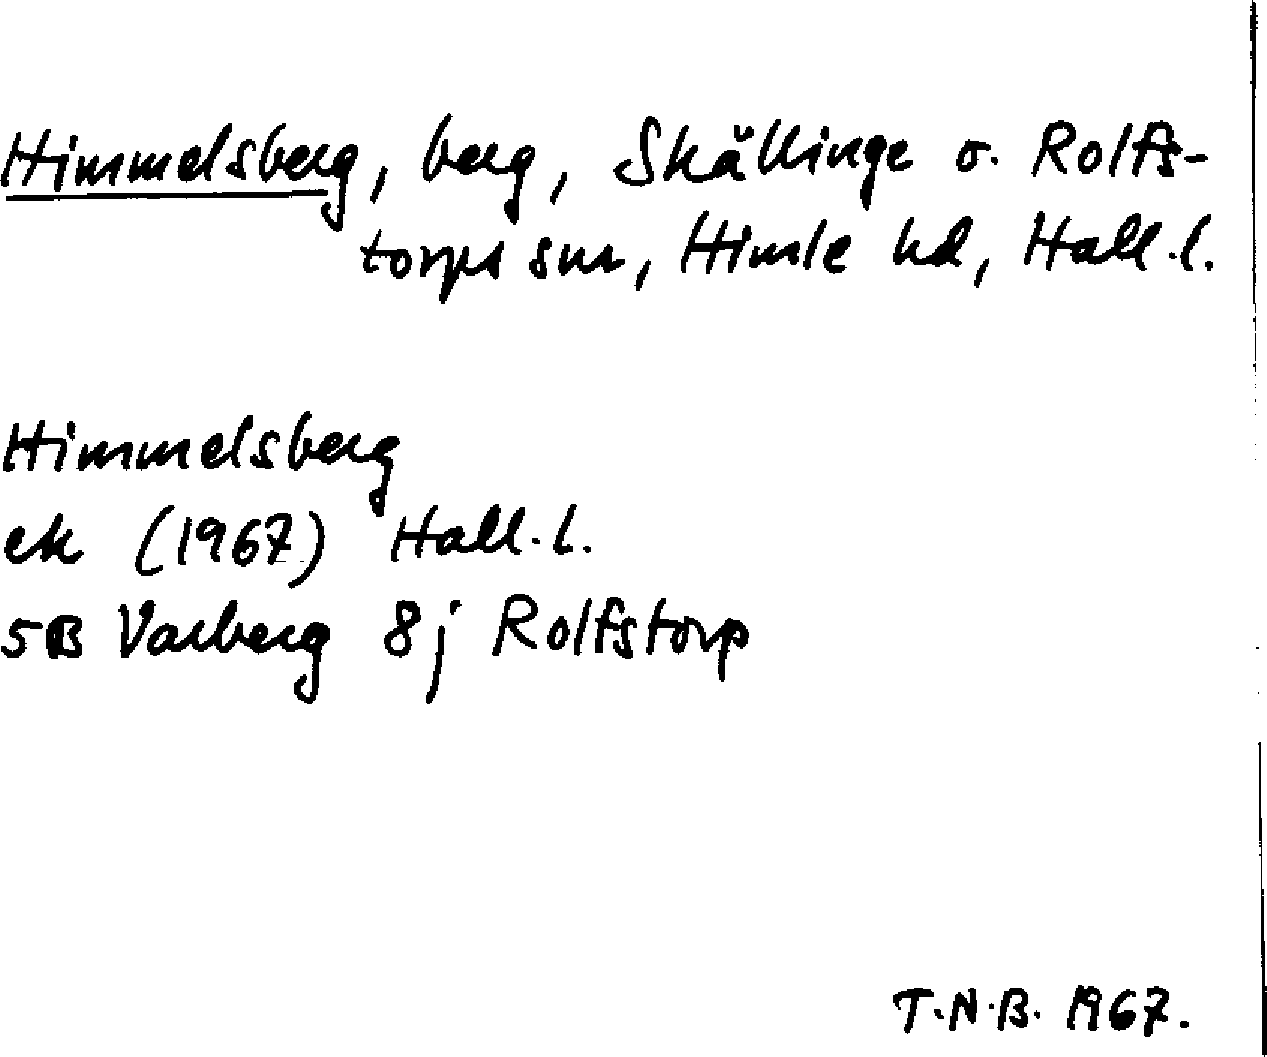 Himmelsberg, berg, Skällinge o. Rolfs-
torps snr, Himle hd, Hall.l.
Himmelsberg
ek (1967) Hall.l.
5B Varberg 8j Rolfstorp
T.N.B. 1967.